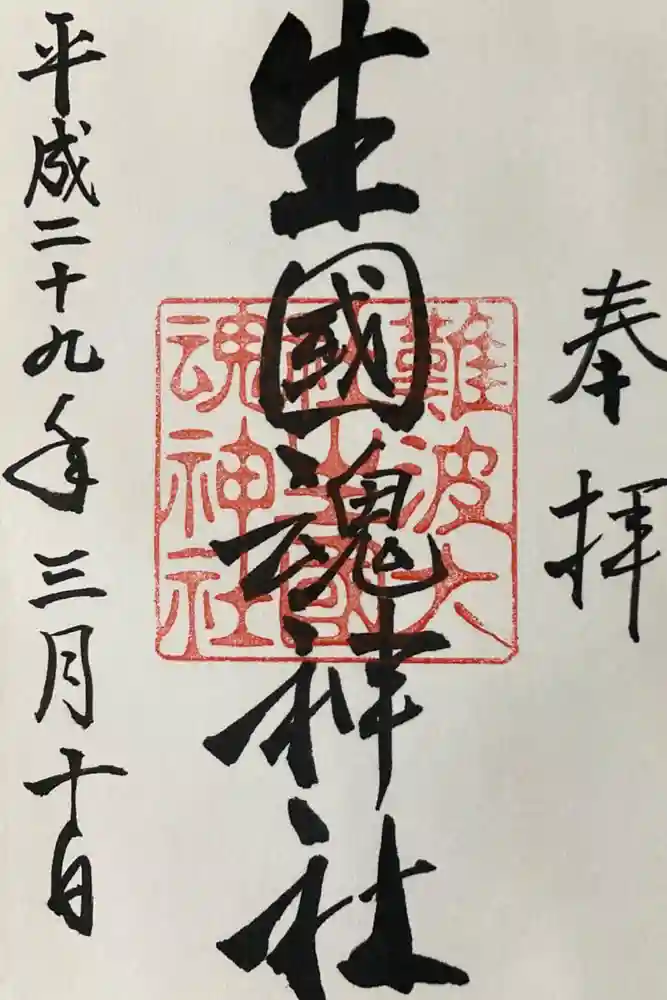 奉拝
生國魂神社
難波大
社生國
魂神社
平成二十九年三月十日